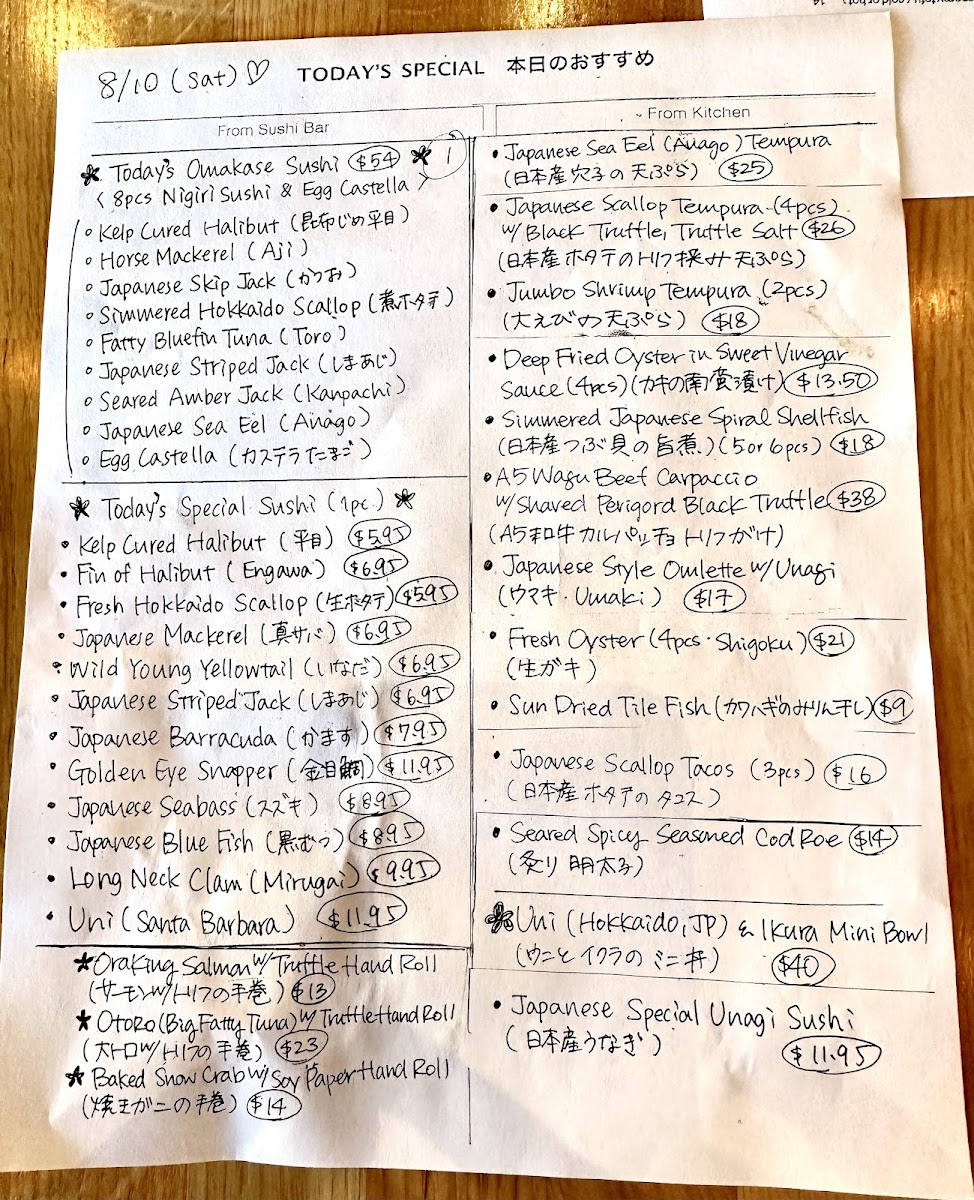 8/10 (Sat) ♡ TODAY'S SPECIAL 本日のおすすめ
From Sushi Bar
Today's Omakase Sushi $54 1
〈 8pcs Nigiri Sushi & Egg Castella 〉
Kelp Cured Halibut (昆布じめ平目)
Horse Mackerel (Aji)
Japanese Skip Jack (かつお)
Simmered Hokkaido Scallop (煮ホタテ)
Fatty Bluefin Tuna (Toro)
Japanese Striped Jack (しまあじ)
Seared Amber Jack (Kanpachi)
Japanese Sea Eel (Anago)
Egg Castella (カステラたまご)
Today's Special Sushi (1pc)
• Kelp Cured Halibut (平目) $5.95
• Fin of Halibut (Engawa) $6.95
• Fresh Hokkaido Scallop (生ホタテ) $5.95
• Japanese Mackerel (真サバ) $6.95
• Wild Young Yellowtail (いなだ) $6.95
• Japanese Striped Jack (しまあじ) $6.95
• Japanese Barracuda (かます) $7.95
• Golden Eye Snapper (金目鯛) $11.95
• Japanese Seabass (スズキ) $8.95
• Japanese Blue Fish (黒むつ) $8.95
• Long Neck Clam (Mirugai) $9.95
• Uni (Santa Barbara) $11.95
★ Ora King Salmon w/ Truffle Hand Roll
(サーモンw/トリフの手巻) $13
★ Otoro (Big Fatty Tuna) w/ Truffle Hand Roll
(大トロw/トリフの手巻) $23
★ Baked Snow Crab w/ Soy Paper Hand Roll
(焼ズワイガニの手巻) $14
From Kitchen
• Japanese Sea Eel (Anago) Tempura
(日本産穴子の天ぷら) $25
• Japanese Scallop Tempura (4pcs)
w/ Black Truffle, Truffle Salt $26
(日本産ホタテのトリフ挟み天ぷら)
• Jumbo Shrimp Tempura (2pcs)
(大えびの天ぷら) $18
• Deep Fried Oyster in Sweet Vinegar
Sauce (4pcs) (カキの南蛮漬け) $13.50
• Simmered Japanese Spiral Shellfish
(日本産つぶ貝の旨煮) (5 or 6pcs) $18
• A5 Wagu Beef Carpaccio
w/ Shaved Perigord Black Truffle $38
(A5和牛カルパッチョトリフがけ)
• Japanese Style Omlette w/ Unagi
(ウマキ・Umaki) $17
• Fresh Oyster (4pcs・Shigoku) $21
(生ガキ)
• Sun Dried Tile Fish (カワハギのみりん干し) $9
• Japanese Scallop Tacos (3pcs) $16
(日本産ホタテのタコス)
• Seared Spicy Seasoned Cod Roe $14
(炙り明太子)
Uni (Hokkaido, JP) & Ikura Mini Bowl
(ウニとイクラのミニ丼) $40
• Japanese Special Unagi Sushi
(日本産うなぎ) $11.95